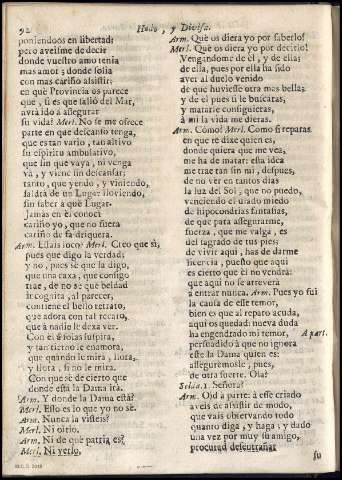 92 Hado, y Divisa.
poniendoos en libertad;
pero aveisme de decir
donde vuestro amo tenia
mas amor; donde solia
con mas cariño asistir:
en què Provincia os parece
que, si es que saliò del Mar,
avrà ido à assegurar
su vida? Merl. No se me ofrece
parte en que descanso tenga,
que es tan vario, tan altivo
su espiritu ambulativo,
que sin que vaya, ni venga
và, y viene sin descansar;
tanto, que yendo, y viniendo,
saldrà de un Lugar lloviendo,
sin saber à què Lugar.
Jamàs en èl conocì
cariño yo, que no fuera
cariño de faldriquera.
Arm. Estais loco? Merl. Creo que sì,
pues que digo la verdad;
y no, pues sè que la digo,
que una caxa, que consigo
trae, de no sè què beldad
incognita, al parecer,
contiene el bello retrato,
que adora con tal recato,
que à nadie le dexa ver.
Con èl à solas suspira,
y tan tierno le enamora,
que quando le mira, llora,
y llora, si no le mira.
Con que sè de cierto que
donde està la Dama irà.
Arm. Y donde la Dama està?
Merl. Esso es lo que yo no sè.
Arm. Nunca la visteis?
Merl. Ni oìrlo.
Arm. Ni de què patria es?
Merl. Ni verlo,
Arm. Què os diera yo por saberlo!
Merl. Què os diera yo por decirlo!
Vengandome de èl, y de ella;
de ella, pues por ella ha sido
aver al duelo venido
de que huviesse otra mas bella;
y de èl pues si le buscaras,
y matarle consiguieras,
à mi la vida me dieras.
Arm. Còmo? Merl. Como si reparas
en que te dixe quien es,
donde quiera que me vea,
me ha de matar: esta idea
me trae tan sin mi, despues,
de no ver en tantos dias
la luz del Sol; que no puedo,
venciendo el urado miedo
de hipocondrias fantasias,
de que para assegurarme,
fuerza, que me valga, es
del sagrado de tus pies;
de vivir aqui, has de darme
licencia, puesto que aqui
es cierto que èl no vendrà:
que aqui no se atreverà
à entrar nunca. Arm. Pues yo fui
la causa de esse temor,
bien es que al reparo acuda,
aqui os quedad: nueva duda
ha engendrado mi temor, A part.
persuadido à que no ignora
este la Dama quien es:
asseguremosle, pues,
de otra suerte. Ola?
Selda.1. Señora?
Arm. Oìd à parte: à esse criado
aveis de assistir de modo,
que vais observando todo
quanto diga, y haga; y dado
una vez por muy su amigo,
procurad desentrañar
su